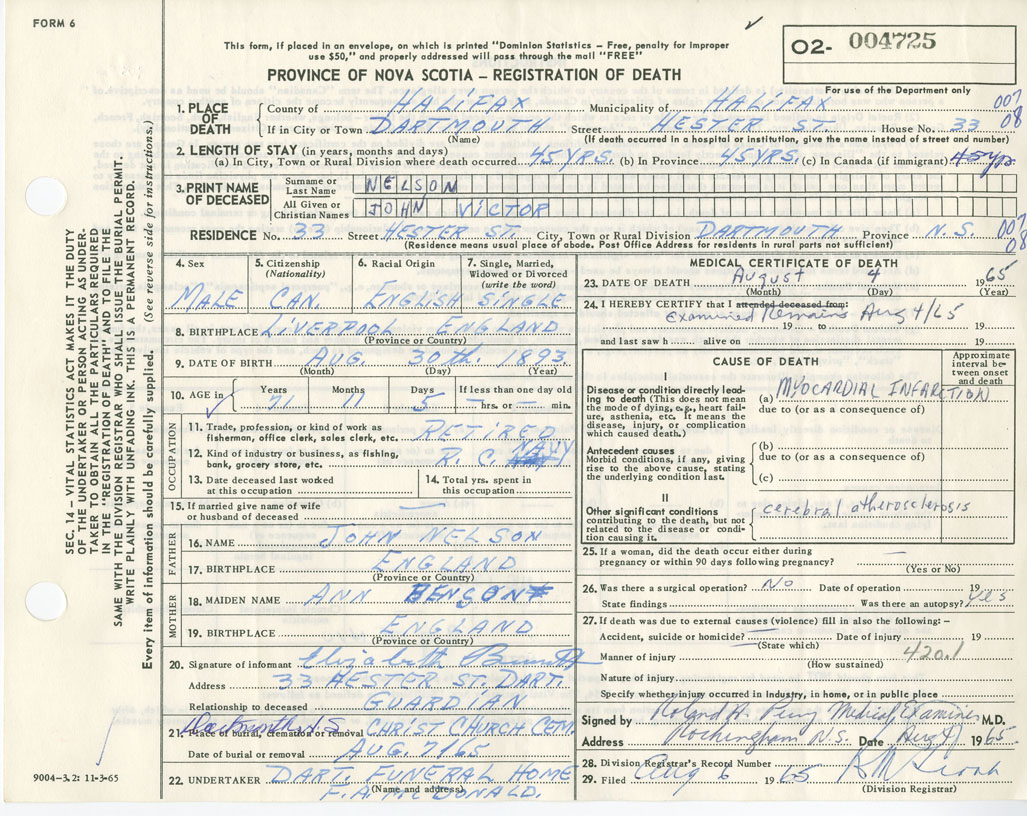 FORM 6
This form, if placed in an envelope, on which is printed "Dominion Statistics – Free, penalty for improper
use $50," and properly addressed will pass through the mail "FREE"
O2- 004725
PROVINCE OF NOVA SCOTIA – REGISTRATION OF DEATH
For use of the Department only
1. PLACE OF DEATH
County of HALIFAX Municipality of HALIFAX 007
If in City or Town DARTMOUTH Street HESTER ST. House No. 33 08
(Name) (If death occurred in a hospital or institution, give the name instead of street and number)
2. LENGTH OF STAY (in years, months and days)
(a) In City, Town or Rural Division where death occurred 45 YRS. (b) In Province 45 YRS. (c) In Canada (if immigrant) 45 yrs
3. PRINT NAME OF DECEASED
Surname or Last Name NELSON
All Given or Christian Names JOHN VICTOR
RESIDENCE No. 33 Street HESTER ST. City, Town or Rural Division DARTMOUTH Province N.S. 007
08
(Residence means usual place of abode. Post Office Address for residents in rural parts not sufficient)
4. Sex MALE
5. Citizenship (Nationality) CAN.
6. Racial Origin ENGLISH
7. Single, Married, Widowed or Divorced (write the word) SINGLE
8. BIRTHPLACE LIVERPOOL ENGLAND
(Province or Country)
9. DATE OF BIRTH AUG. 30th. 1893
(Month) (Day) (Year)
10. AGE in Years 71 Months 11 Days 5 If less than one day old – hrs. or – min.
OCCUPATION
11. Trade, profession, or kind of work as fisherman, office clerk, sales clerk, etc. RETIRED
12. Kind of industry or business, as fishing, bank, grocery store, etc. R. C. NAVY
13. Date deceased last worked at this occupation
14. Total yrs. spent in this occupation
15. If married give name of wife or husband of deceased —
FATHER
16. NAME JOHN NELSON
17. BIRTHPLACE ENGLAND
(Province or Country)
MOTHER
18. MAIDEN NAME ANN BENSON
19. BIRTHPLACE ENGLAND
(Province or Country)
20. Signature of informant Elizabeth
Address 33 HESTER ST. DART.
Relationship to deceased GUARDIAN
21. Place of burial, cremation or removal Dartmouth N.S. CHRIST CHURCH CEM.
Date of burial or removal AUG. 7/65
22. UNDERTAKER DART. FUNERAL HOME
(Name and address)
F. A. McDONALD.
MEDICAL CERTIFICATE OF DEATH
23. DATE OF DEATH August 4 1965
(Month) (Day) (Year)
24. I HEREBY CERTIFY that I attended deceased from:
Examined Remains Aug 4/65
19 to 19
and last saw h alive on 19
CAUSE OF DEATH
Approximate interval between onset and death
I
Disease or condition directly leading to death (This does not mean the mode of dying, e.g., heart failure, asthenia, etc. It means the disease, injury, or complication which caused death.)
(a) MYOCARDIAL INFARCTION
due to (or as a consequence of)
Antecedent causes
Morbid conditions, if any, giving rise to the above cause, stating the underlying condition last.
(b)
due to (or as a consequence of)
(c)
II
Other significant conditions contributing to the death, but not related to the disease or condition causing it.
cerebral atherosclerosis
25. If a woman, did the death occur either during pregnancy or within 90 days following pregnancy? —
(Yes or No)
26. Was there a surgical operation? No Date of operation 19
State findings Was there an autopsy? yes
27. If death was due to external causes (violence) fill in also the following: –
Accident, suicide or homicide? — Date of injury 19
(State which)
Manner of injury 420.1
(How sustained)
Nature of injury
Specify whether injury occurred in industry, in home, or in public place
Signed by Roland H. Perry Medical Examiner M.D.
Address Rockingham N.S. Date Aug 4 1965
28. Division Registrar's Record Number
29. Filed Aug 6 1965
(Division Registrar)
SEC. 14 – VITAL STATISTICS ACT MAKES IT THE DUTY
OF THE UNDERTAKER OR PERSON ACTING AS UNDER-
TAKER TO OBTAIN ALL THE PARTICULARS REQUIRED
IN THE "REGISTRATION OF DEATH" AND TO FILE THE
SAME WITH THE DIVISION REGISTRAR WHO SHALL ISSUE THE BURIAL PERMIT.
WRITE PLAINLY WITH UNFADING INK. THIS IS A PERMANENT RECORD.
Every item of information should be carefully supplied. (See reverse side for instructions.)
9004-3.2: 11-3-65